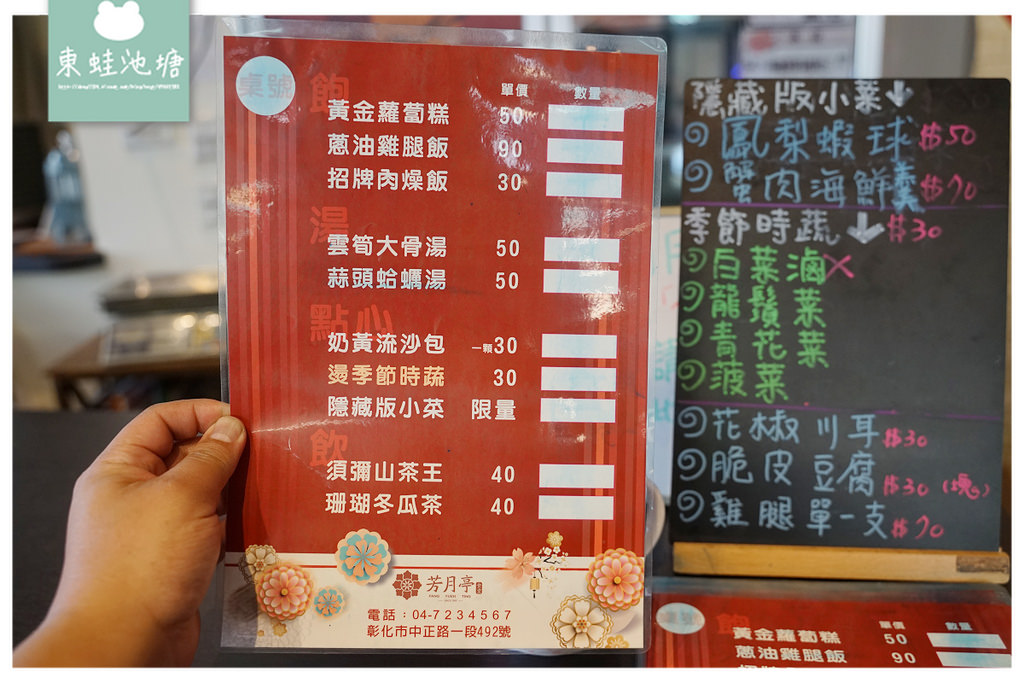 東蛙池塘
桌號
飽
單價 數量
黃金蘿蔔糕 50
蔥油雞腿飯 90
招牌肉燥飯 30
湯
雲筍大骨湯 50
蒜頭蛤蠣湯 50
點心
奶黃流沙包 一顆30
燙季節時蔬 30
隱藏版小菜 限量
飲
須彌山茶王 40
珊瑚冬瓜茶 40
芳月亭
FANG YUEH TING
電話：04-7234567
彰化市中正路一段492號
隱藏版小菜↓
鳳梨蝦球 $50
蟹肉海鮮羹 $70
季節時蔬↓ $30
白菜滷X
龍鬚菜
青花菜
菠菜
花椒川耳 $30
脆皮豆腐 $30 (塊)
雞腿單一支 $70
飽
單價 數量
黃金蘿蔔糕 50
蔥油雞腿飯 90